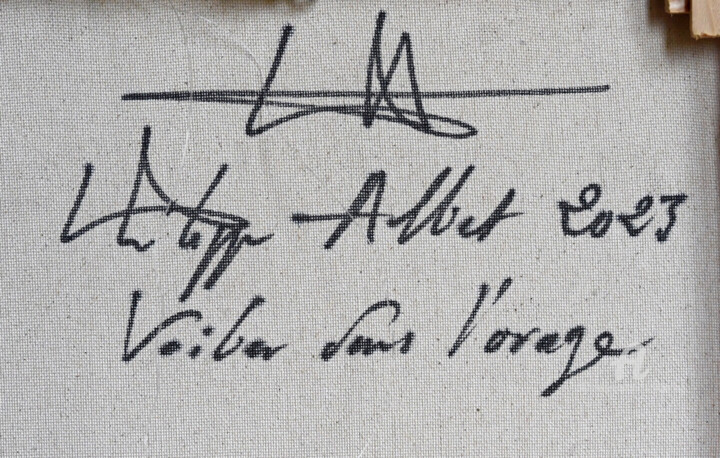 Philippe Albet 2023
Voilier dans l'orage